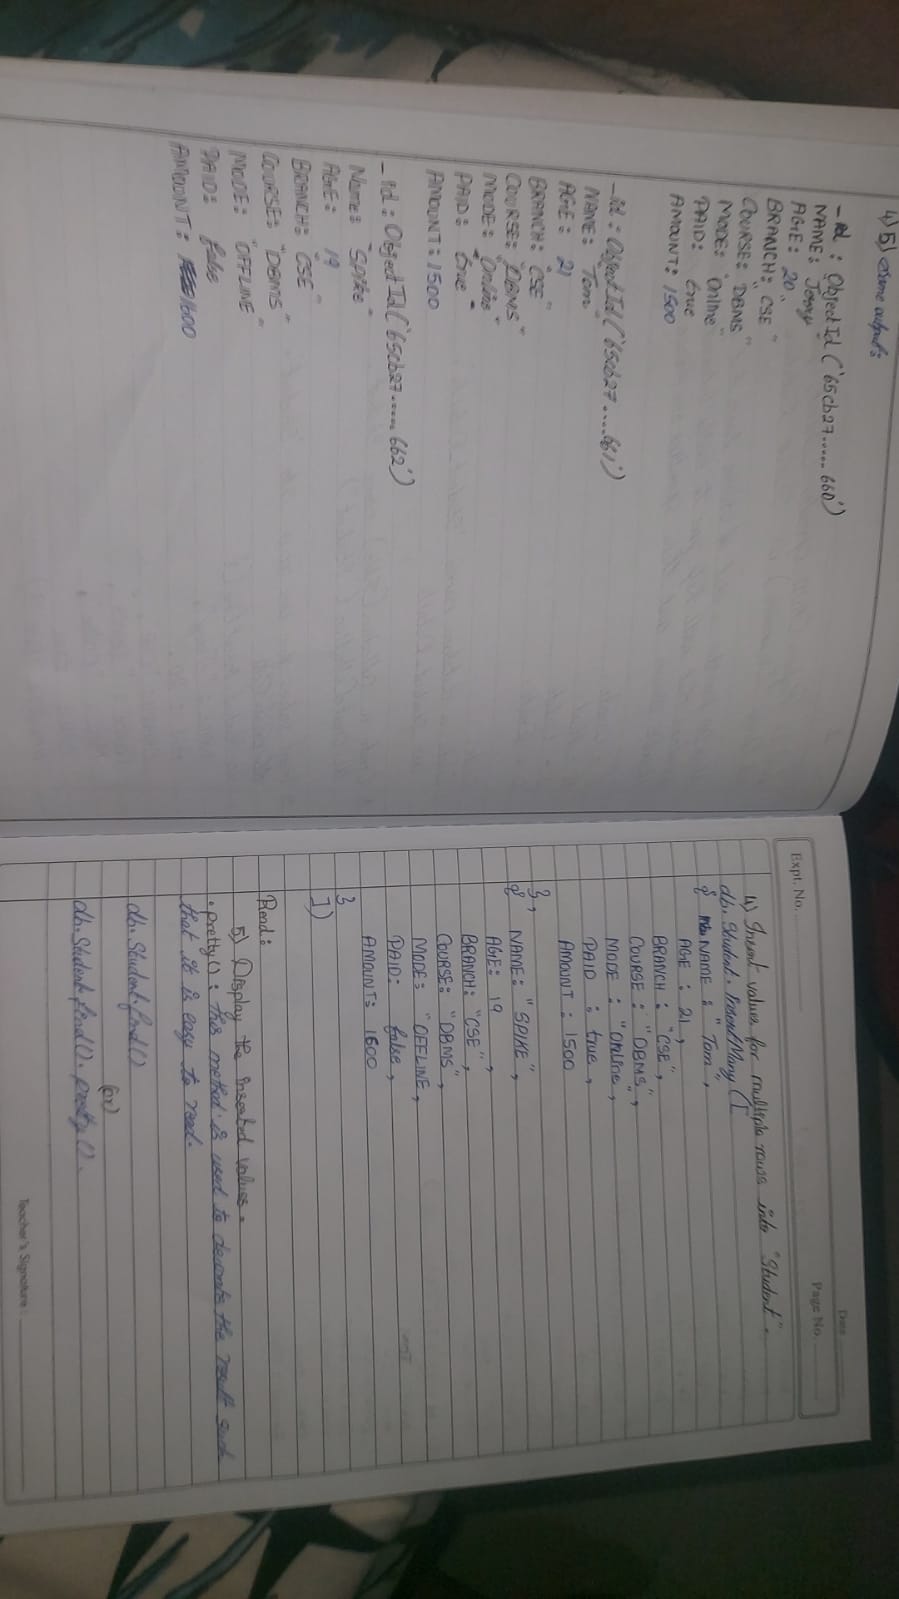 4) 5) Same output:
_id : ObjectId ('65cb27..... 660')
NAME: "Jerry"
AGE: 20
BRANCH: "CSE"
COURSE: "DBMS"
MODE: "Online"
PAID: true
AMOUNT: 1500
_id : ObjectId ('65cb27....661')
NAME: "Tom"
AGE: 21
BRANCH: "CSE"
COURSE: "DBMS"
MODE: "Online"
PAID: "true"
AMOUNT: 1500
_id : ObjectId ('65cb27..... 662')
Name: "Spike"
AGE: 19
BRANCH: "CSE"
COURSE: "DBMS"
MODE: "OFFLINE"
PAID: false
AMOUNT: 1600
Date
Expt. No. Page No.
4) Insert values for multiple rows into "Student".
db. Student. insertMany ([
{ NAME : "Tom",
AGE : 21 ,
BRANCH : "CSE",
COURSE : "DBMS",
MODE : "Online",
PAID : true ,
AMOUNT : 1500
},
{ NAME: "SPIKE",
AGE: 19 ,
BRANCH: "CSE",
COURSE: "DBMS",
MODE: "OFFLINE,
PAID: false ,
AMOUNT: 1600
}
])
Read:
5) Display the inserted values.
.pretty() : this method is used to decorate the result such
that it is easy to read.
db. Student.find()
(or)
db.Student.find(). pretty().
Teacher's Signature :